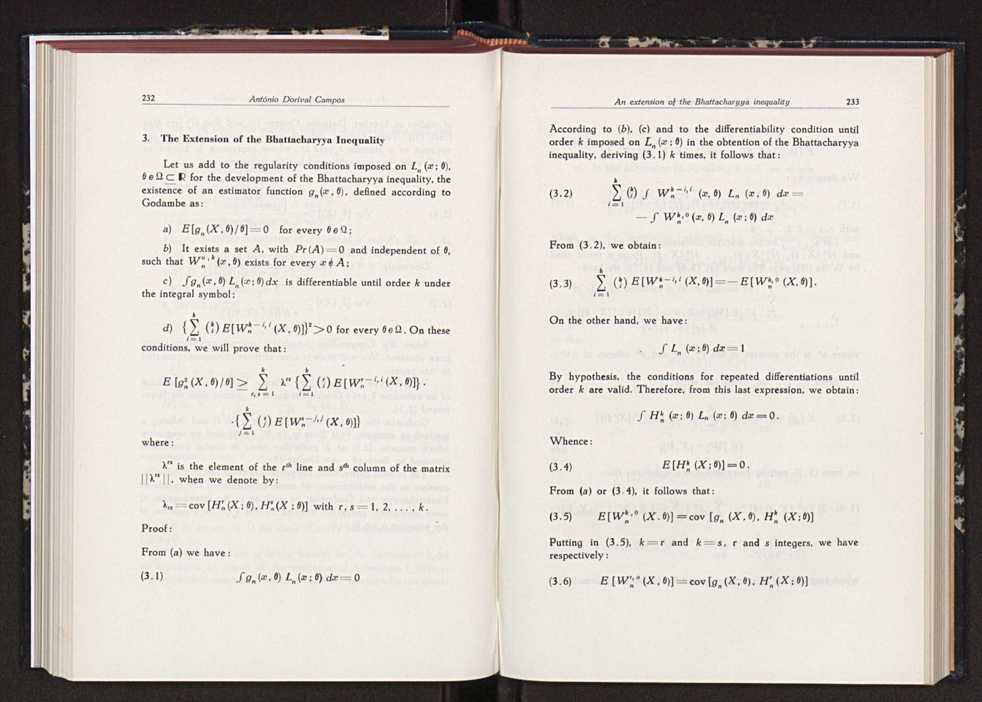 232 António Dorival Campos
3. The Extension of the Bhattacharyya Inequality
Let us add to the regularity conditions imposed on Lₙ (x ; θ),
θ ε Ω ⊆ ℝ for the development of the Bhattacharyya inequality, the
existence of an estimator function gₙ(x , θ), defined according to
Godambe as:
a) E[gₙ(X , θ)/θ] = 0 for every θ ε Ω;
b) It exists a set A, with Pr(A) = 0 and independent of θ,
such that Wₙᵒ'ᵏ(x, θ) exists for every x ∉ A;
c) ∫gₙ(x, θ) Lₙ(x; θ) dx is differentiable until order k under
the integral symbol;
d) {∑ᵢ₌₁ᵏ (ᵏᵢ) E[Wₙᵏ⁻ⁱ'ⁱ (X , θ)]}² > 0 for every θ ε Ω. On these
conditions, we will prove that:
E [gₙ² (X , θ)/θ] ≥ ∑ᵣ,ₛ₌₁ᵏ λʳˢ {∑ᵢ₌₁ᵏ (ʳᵢ) E[Wₙʳ⁻ⁱ'ⁱ (X, θ)]} ·
·{∑ⱼ₌₁ᵏ (ˢⱼ) E[Wₙˢ⁻ʲ'ʲ (X, θ)]}
where:
λʳˢ is the element of the rᵗʰ line and sᵗʰ column of the matrix
||λʳˢ||, when we denote by:
λᵣₛ = cov [Hₙʳ(X ; θ), Hₙˢ(X ; θ)] with r, s = 1, 2, . . . , k.
Proof:
From (a) we have:
(3.1) ∫gₙ(x, θ) Lₙ(x; θ) dx = 0
An extension of the Bhattacharyya inequality 233
According to (b), (c) and to the differentiability condition until
order k imposed on Lₙ(x ; θ) in the obtention of the Bhattacharyya
inequality, deriving (3.1) k times, it follows that:
(3.2) ∑ᵢ₌₁ᵏ (ᵏᵢ) ∫ Wₙᵏ⁻ⁱ'ⁱ (x, θ) Lₙ (x, θ) dx =
— ∫ Wₙᵏ'⁰ (x, θ) Lₙ (x; θ) dx
From (3.2), we obtain:
(3.3) ∑ᵢ₌₁ᵏ (ᵏᵢ) E[Wₙᵏ⁻ⁱ'ⁱ (X, θ)] = — E[Wₙᵏ'⁰ (X, θ)].
On the other hand, we have:
∫ Lₙ (x; θ) dx = 1
By hypothesis, the conditions for repeated differentiations until
order k are valid. Therefore, from this last expression, we obtain:
∫ Hₙᵏ (x; θ) Lₙ (x; θ) dx = 0.
Whence:
(3.4) E[Hₙᵏ (X; θ)] = 0.
From (a) or (3.4), it follows that:
(3.5) E[Wₙᵏ'⁰ (X. θ)] = cov [gₙ (X, θ), Hₙᵏ (X; θ)]
Putting in (3.5), k = r and k = s, r and s integers, we have
respectively:
(3.6) E [Wₙʳ'⁰ (X , θ)] = cov [gₙ (X, θ), Hₙʳ (X; θ)]